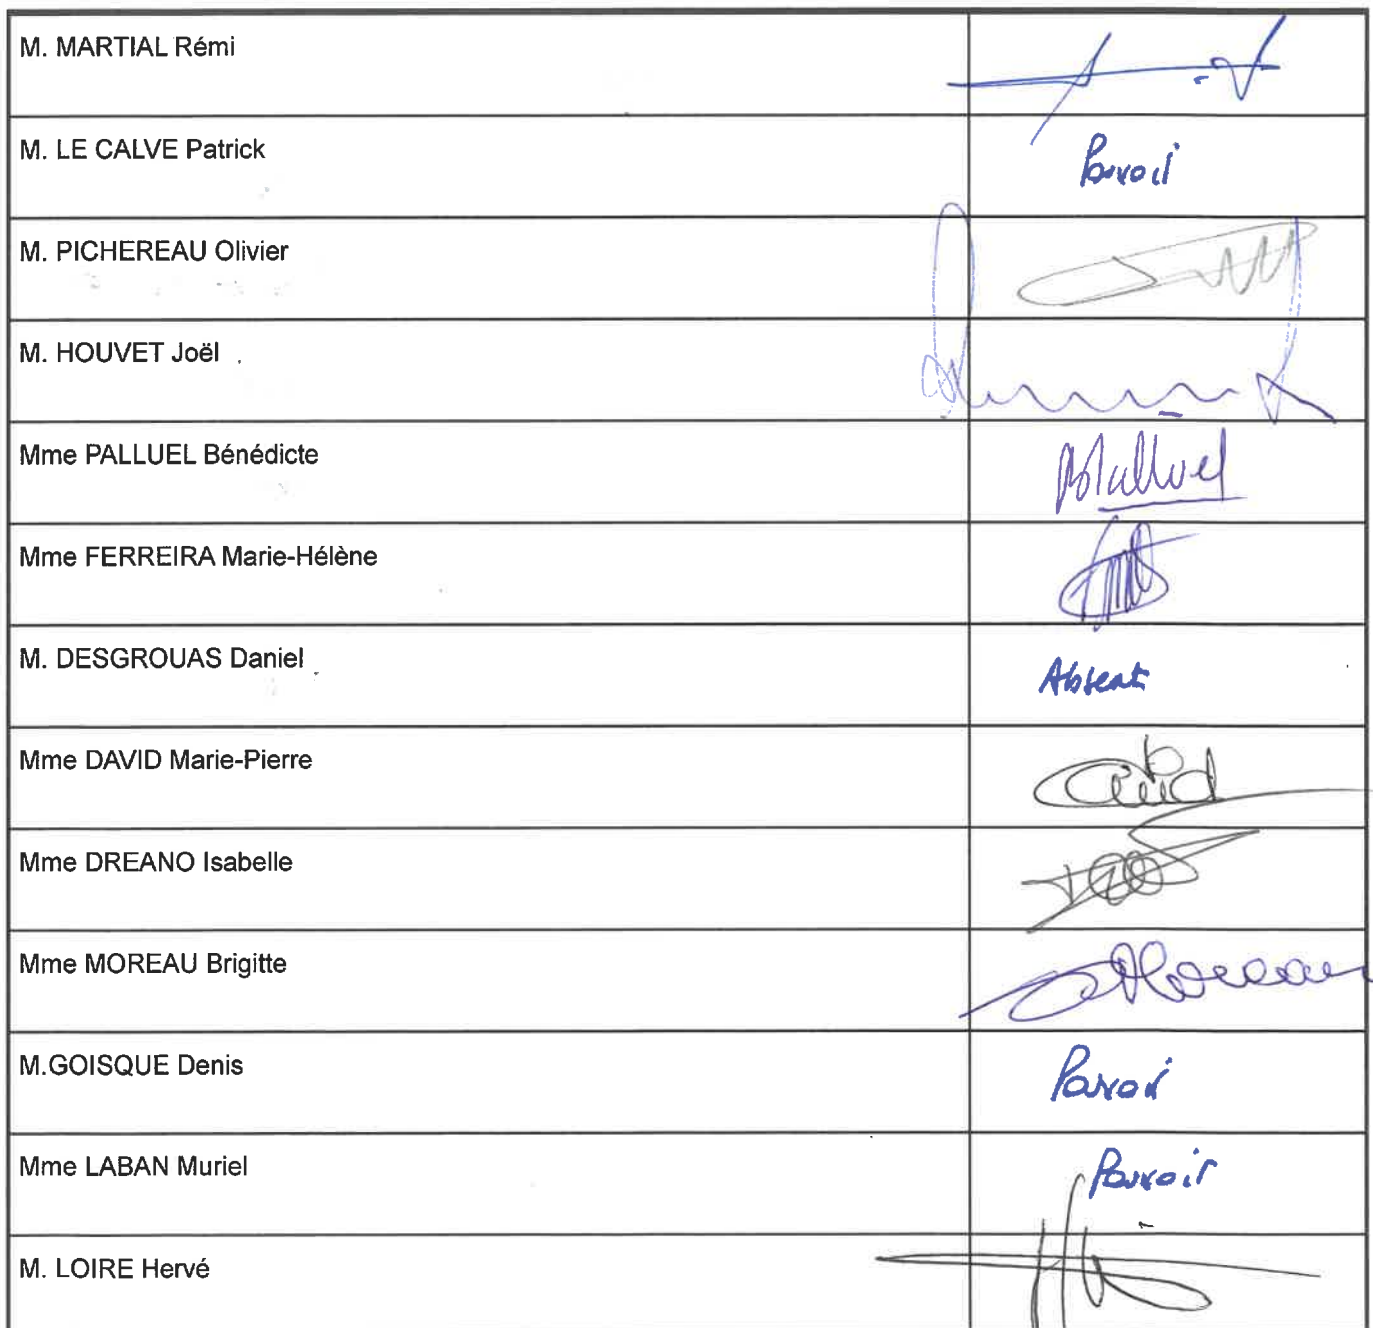 M. MARTIAL Rémi
M. LE CALVE Patrick
Pouvoir
M. PICHEREAU Olivier
M. HOUVET Joël
Mme PALLUEL Bénédicte
BPalluel
Mme FERREIRA Marie-Hélène
M. DESGROUAS Daniel
Absent
Mme DAVID Marie-Pierre
David
Mme DREANO Isabelle
Mme MOREAU Brigitte
Moreau
M.GOISQUE Denis
Pouvoir
Mme LABAN Muriel
Pouvoir
M. LOIRE Hervé